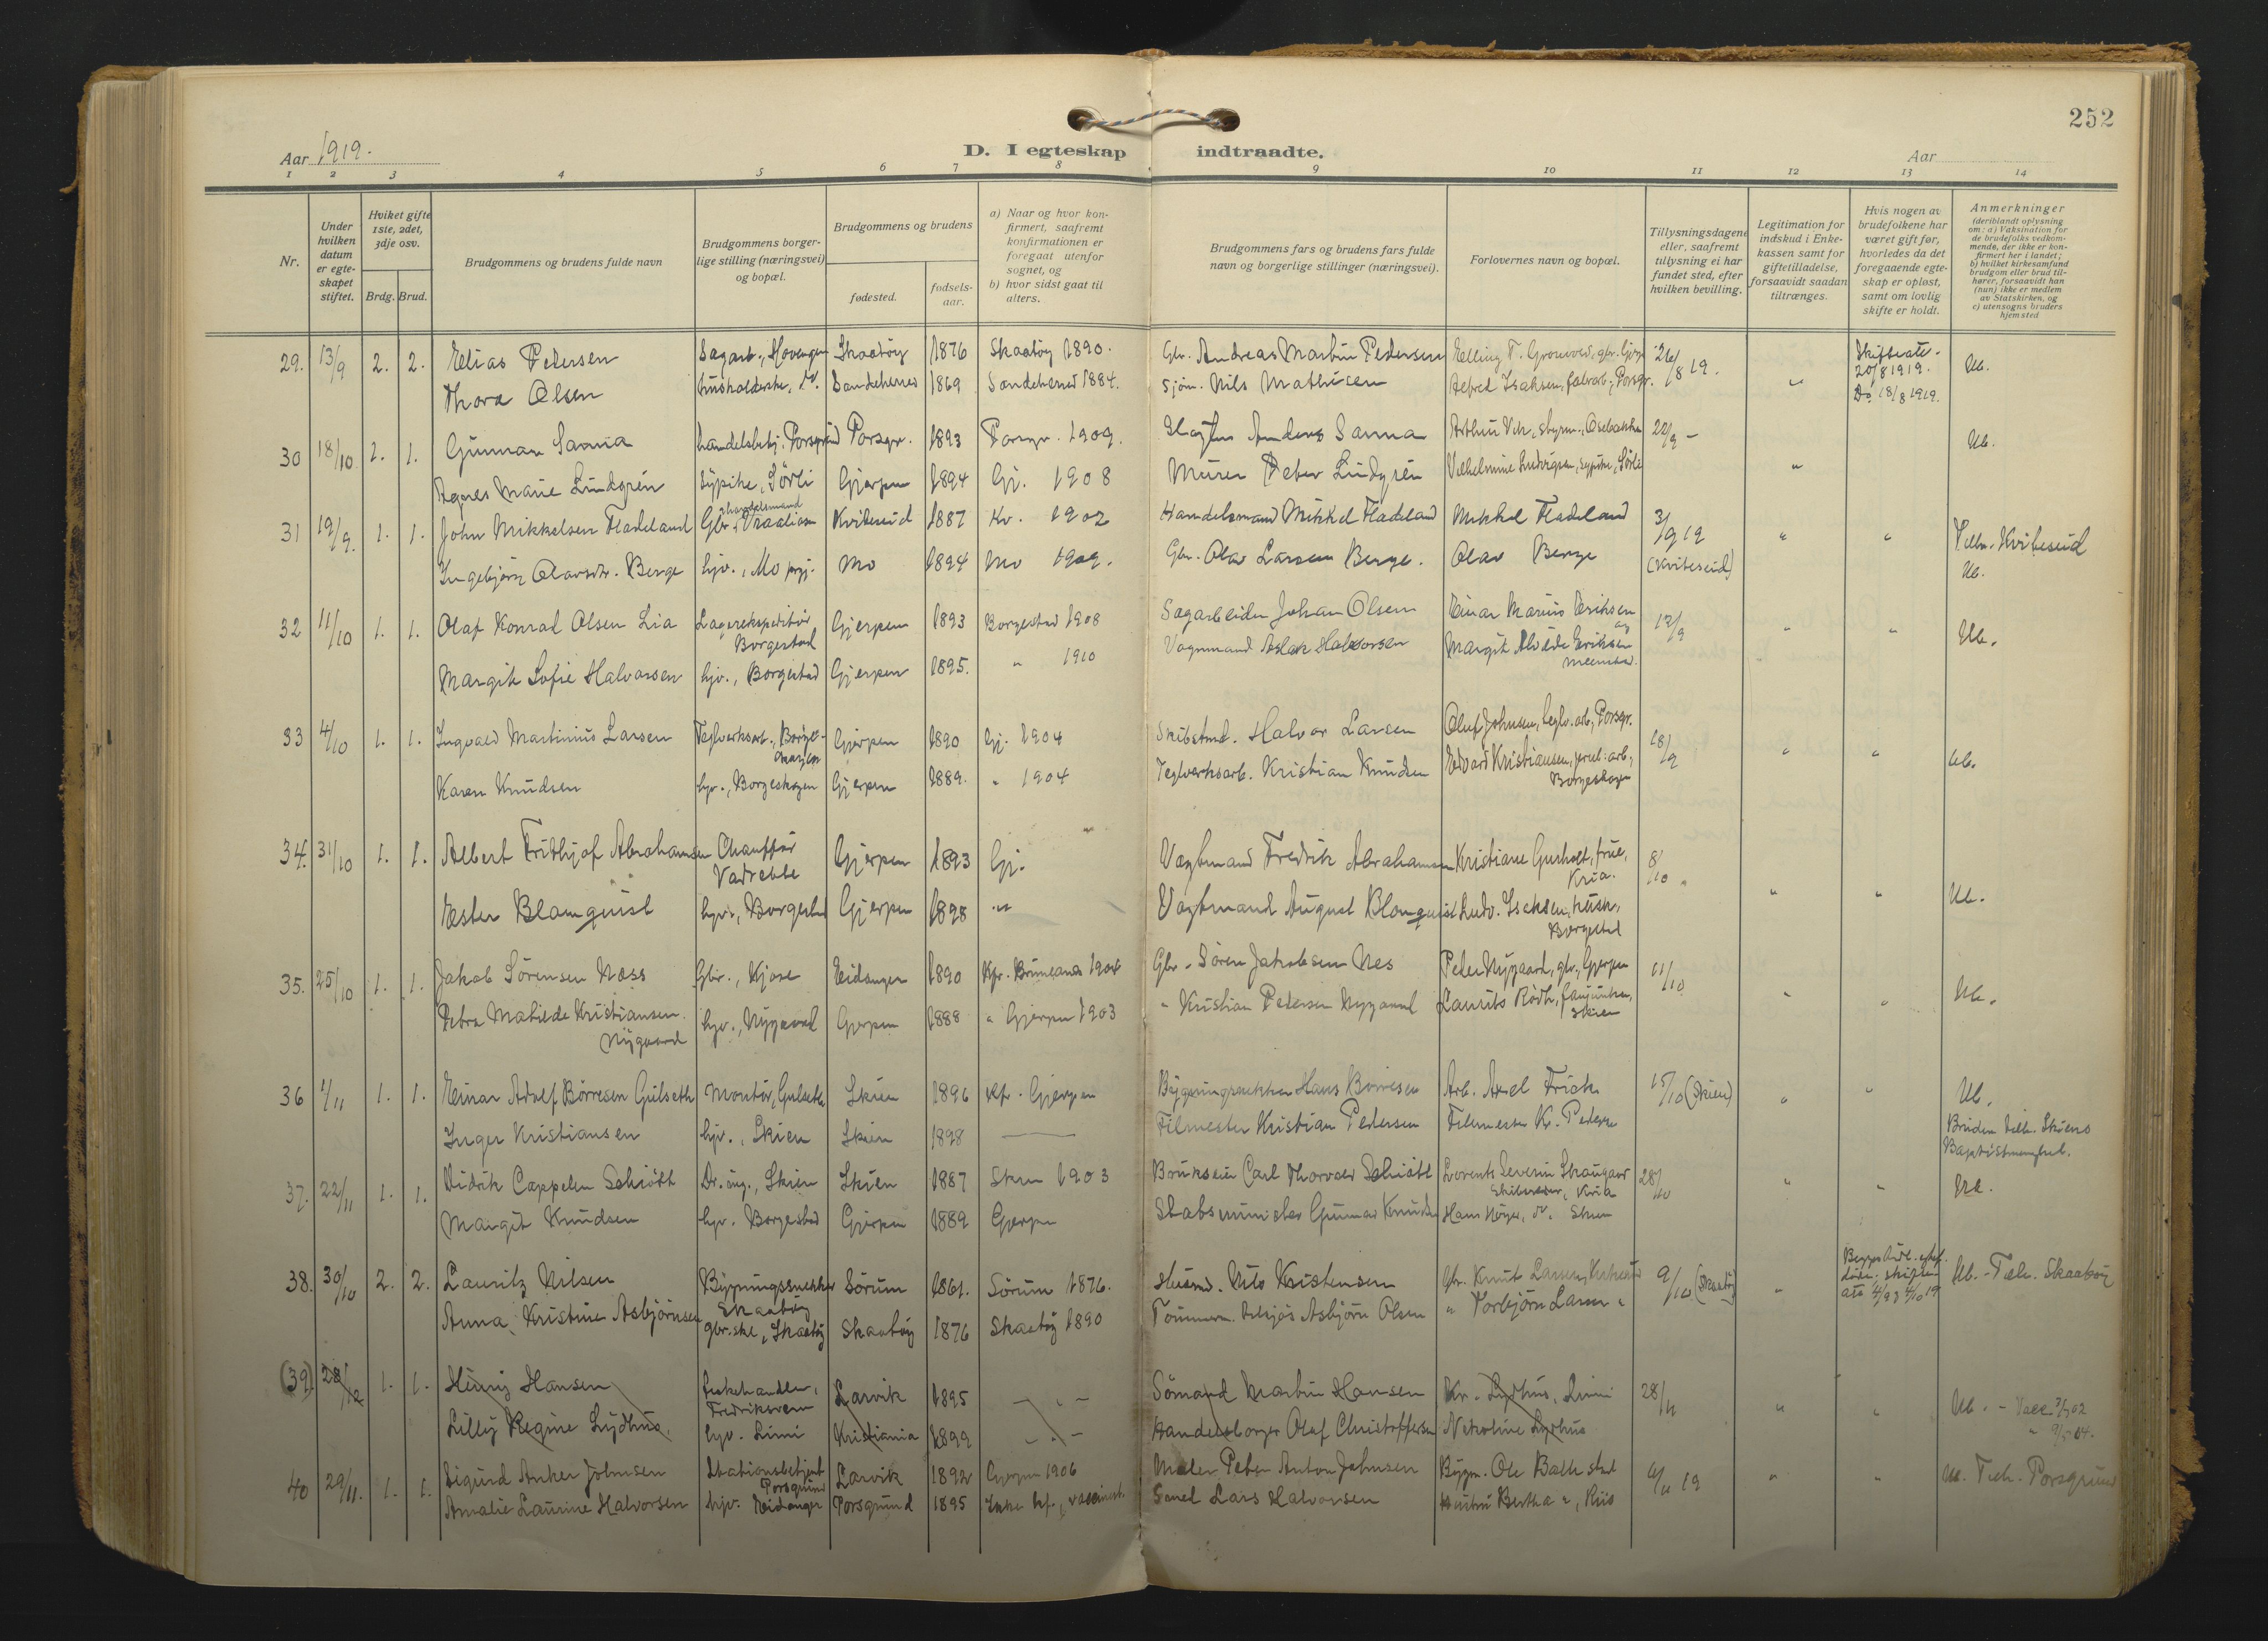 252
Aar 1919.
D. I egteskap indtraadte.
Aar
1 2 3 4 5 6 7 8 9 10 11 12 13 14
Nr.
Under hvilken datum er egteskapet stiftet.
Hviket gifte 1ste, 2det, 3dje osv.
Brdg. Brud.
Brudgommens og brudens fulde navn
Brudgommens borgerlige stilling (næringsvei) og bopæl.
Brudgommens og brudens
fødested.
fødselsaar.
a) Naar og hvor konfirmert, saafremt konfirmationen er foregaat utenfor sognet, og
b) hvor sidst gaat til alters.
Brudgommens fars og brudens fars fulde navn og borgerlige stillinger (næringsvei).
Forlovernes navn og bopæl.
Tillysningsdagene eller, saafremt tillysning ei har fundet sted, efter hvilken bevilling.
Legitimation for indskud i Enkekassen samt for giftetilladelse, forsaavidt saadan tiltrænges.
Hvis nogen av brudefolkene har været gift før, hvorledes da det foregaaende egteskap er opløst, samt om lovlig skifte er holdt.
Anmerkninger
(deriblandt oplysning om: a) Vaksination for de brudefolks vedkommende, der ikke er konfirmert her i landet; b) hvilket kirkesamfund brudgom eller brud tilhører, forsaavidt han (hun) ikke er medlem av Statskirken, og c) utensogns bruders hjemsted
29. 13/9 2. 2. Elias Pedersen Sagarb., Hovengen Skaatøy 1876 Skaatøy 1890. Gbr. Andreas Martin Pedersen 26/8 19. Skifteatt. 20/8 1919.
Thora Olsen Sandeherred 1869 Sandeherred 1884. Sjøm. Nils Mathisen Alfred Isaksen, Porsgr. " Do. 18/8 1919.
30 18/10 1. 1. Gunnar Sanna handelsbetj. Porsgrund Porsgr. 1893 Porsgr. 1909. Anders Sanna 22/9 -
Agnes Marie Lindgrén sypike, Sørli Gjerpen 1894 Gj. 1908 Murer Peter Lindgrén Vilhelmine Ludvigsen, sypike, Sørli "
31 19/9. 1. 1. John Mikkelsen Fladeland Gbr. & handelsmand Kviteseid 1887 Kv. 1902 Handelsmand Mikkel Fladeland Mikkel Fladeland 3/9 19 " " Kviteseid
Ingebjørg Olavsdr. Berge hjv., Mo prgj. Mo 1894 Mo 1909. Gbr. Olav Larsen Berge. Olav Berge (Kviteseid)
32 11/10 1. 1. Olaf Konrad Olsen Lia Lagerekspeditør Borgestad Gjerpen 1893 Borgestad 1908 Sagarbeider Johan Olsen Einar Marius Eriksen og 12/9 " "
Margit Sofie Halvorsen hjv., Borgestad Gjerpen 1895. " 1910 Vognmand Aslak Halvorsen Margit Alvilde Eriksen
33 4/10 1. 1. Ingvald Martinius Larsen Teglverksarb., Gjerpen 1890 Gj. 1904 Halvor Larsen Oluf Johnsen, teglv. arb., Porsgr. 18/9 " "
Karen Knudsen hjv., Borgeskogen Gjerpen 1889. " 1904 Teglverksarb. Kristian Knudsen Edvard Kristiansen, Borgeskogen
34. 31/10 1. 1. Albert Frithjof Abrahamsen Chauffør Vadrette Gjerpen 1893 Gj. Vagtmand Fredrik Abrahamsen Kristiane Gurholt, frue, Kr.a. 8/10 " " "
Ester Blomquist hjv., Borgestad Gjerpen 1898 " Vagtmand August Blomquist Ludv. Isaksen, Borgestad
35. 25/10 1. 1. Jakob Sørensen Næss Gbr., Kjose Eidanger 1890 1904 Gbr. Søren Jakobsen Nes Peder Nygaard, gbr., Gjerpen 11/10
Petra Matilde Kristiansen Nygaard hjv., Nygaard Gjerpen 1888 " Gjerpen 1903 " Kristian Pedersen Nygaard Laurits Rødh, Skien " "
36 1/11 1. 1. Einar Adolf Børresen Gulseth Montør, Gulseth Skien 1896 Kf. Gjerpen Bygningssnekker Hans Børresen Arb. Axel Frick 15/10 (Skien) " "
Inger Kristiansen hjv., Skien Skien 1898 — Filmester Kristian Pedersen Filemester Kr. Pedersen Bruden tilh. Skiens Baptistmenighed.
37. 22/11 1. 1. Didrik Cappelen Schiött Dr. ing., Skien Skien 1887 Skien 1903 Brukseier Carl Thorvald Schiött Lorents Severin Skaugaard, Kr.a 28/10 " "
Margit Knudsen hjv. Borgestad Gjerpen 1889 Gjerpen Statsminister Gunnar Knudsen Hans Skien
38. 30/10 2. 2. Lauritz Nilsen Bygningssnekker Skaatøy Sørum 1861. Sørum 1876. Nils Kristensen Gbr. Knut Larsen 9/10 (Skaatøy) "
Anna Kristine Asbjørnsen Skaatøy Skaatøy 1876 Skaatøy 1890 Asbjørn Olsen " Torbjørn Larsen " Skaatøy
(39) 28/12 1. 1. Hansen fiskehandler, Fredriksvern Larvik 1895 — " — Sømand Martin Hansen Kr. Lydhus, Limi 28/11 " "
Lilly Regine Lydhus. hjv. Limi Kristiania 1899 — " — Handelsborger Olaf Christoffersen Nikoline Lydhus
40 29/11. 1. 1. Sigurd Anker Johnsen Stationsbetjent Porsgrund Larvik 1892 Gjerpen 1906 Maler Peter Anton Johnsen Bygm. Ole Balkestad 6/11 19 " " Porsgrund
Amalie Laurine Halvorsen hjv. Eidanger Porsgrund 1895 Ikke kf., vaccinert. Lars Halvorsen Bertha